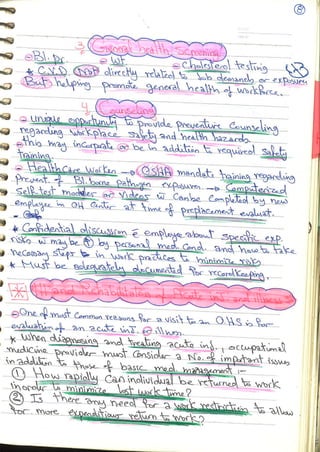 8
3. General health Screening
⊖ Bl. pr ⊖ Wt. ⊖ Cholesterol testing
* C.V.D. Not directly related to Job demands or exposure
But helping promote general health of workforce.
4. Counseling
⊖ unique opportunity to provide preventive Counseling
regarding workplace safety and health hazards
⊖ This may incorporate or be in addition to required Safety
training.
⊖ HealthCare Worker → OSHA mandate training regarding
prevent. of Bl. borne pathogen exposure → Computerized
self-test modules or Videos w Can be Completed by new
employee in OH Center at time of preplacement evaluat.
* Confidential discussion ē employee about specific exp.
risks w may be ↑ by personal med. Cond. and how to take
necessary steps in work practices to minimize risks
* Must be adequately documented for recordkeeping.
and Rehabilitation of Acute inj. and illness
⊖ One of most Common reasons for a visit to an O.H.S is for
evaluation of an acute inj. or illness.
* When diagnosing and treating acute inj., occupational
medicine provider must Consider a No. of important issues
in addition to those of basic med. management :-
① How rapidly Can individual be returned to work
in order to minimize lost work time?
② Is there any need for a work restriction to allow
for more expeditious return to work?